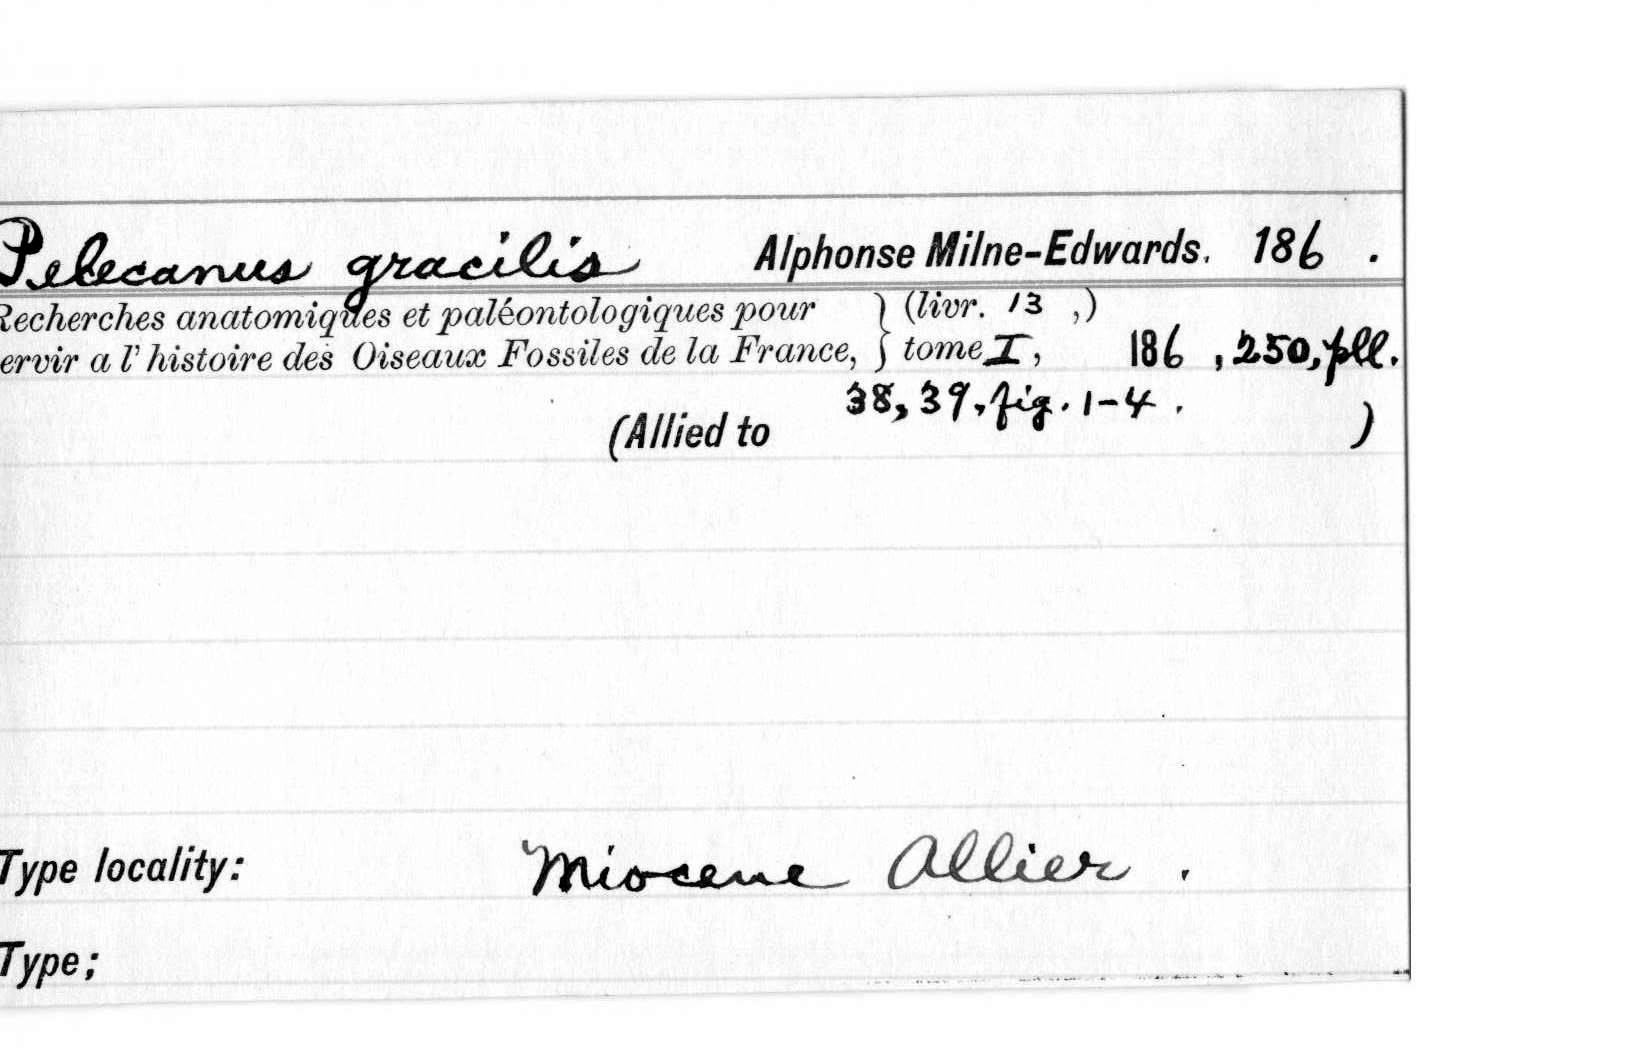 Pelecanus gracilis Alphonse Milne-Edwards. 186 .
Recherches anatomiques et paléontologiques pour } (livr. 13 ,)
ervir a l'histoire des Oiseaux Fossiles de la France, } tome I, 186 , 250, pll.
38, 39, fig. 1-4 .
(Allied to )
Type locality: Miocene Allier .
Type;